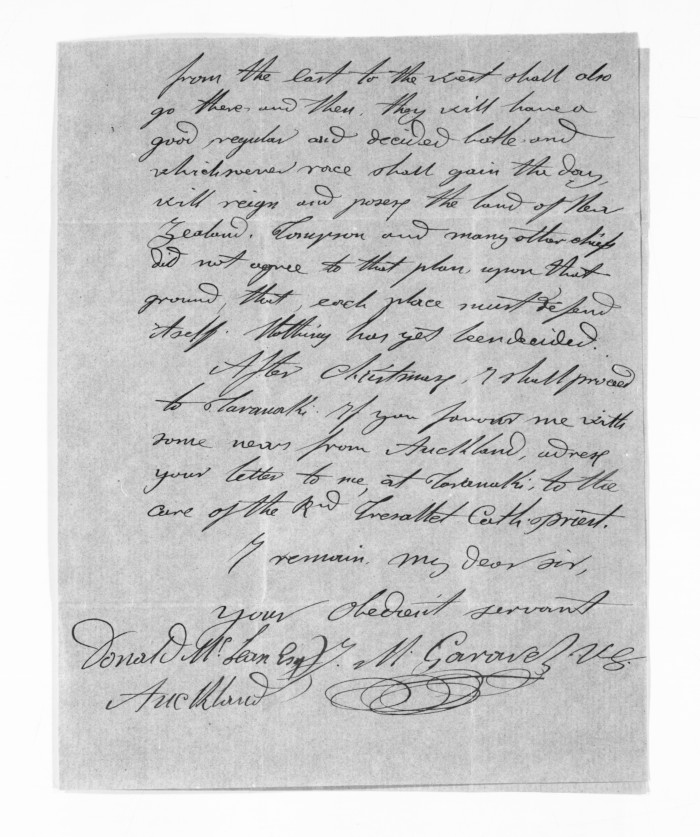 from the east to the west shall also
go there and then, they will have a
good regular and decided battle and
whichsoever race shall gain the day,
will reign and posess the land of New
Zealand. Tompson and many other chiefs
did not agree to that plan, upon that
ground, that, each place must defend
itself. Nothing has yet been decided.
After Christmass, I shall proceed
to Taranaki. If you favour me with
some news from Auckland, adress
your letter to me, at Taranaki, to the
care of the Rvd Tresallet Cath. priest.
I remain, my dear sir,
your obedient servant
Donald McLean Esq J. M. Garavel V.G.
Auckland